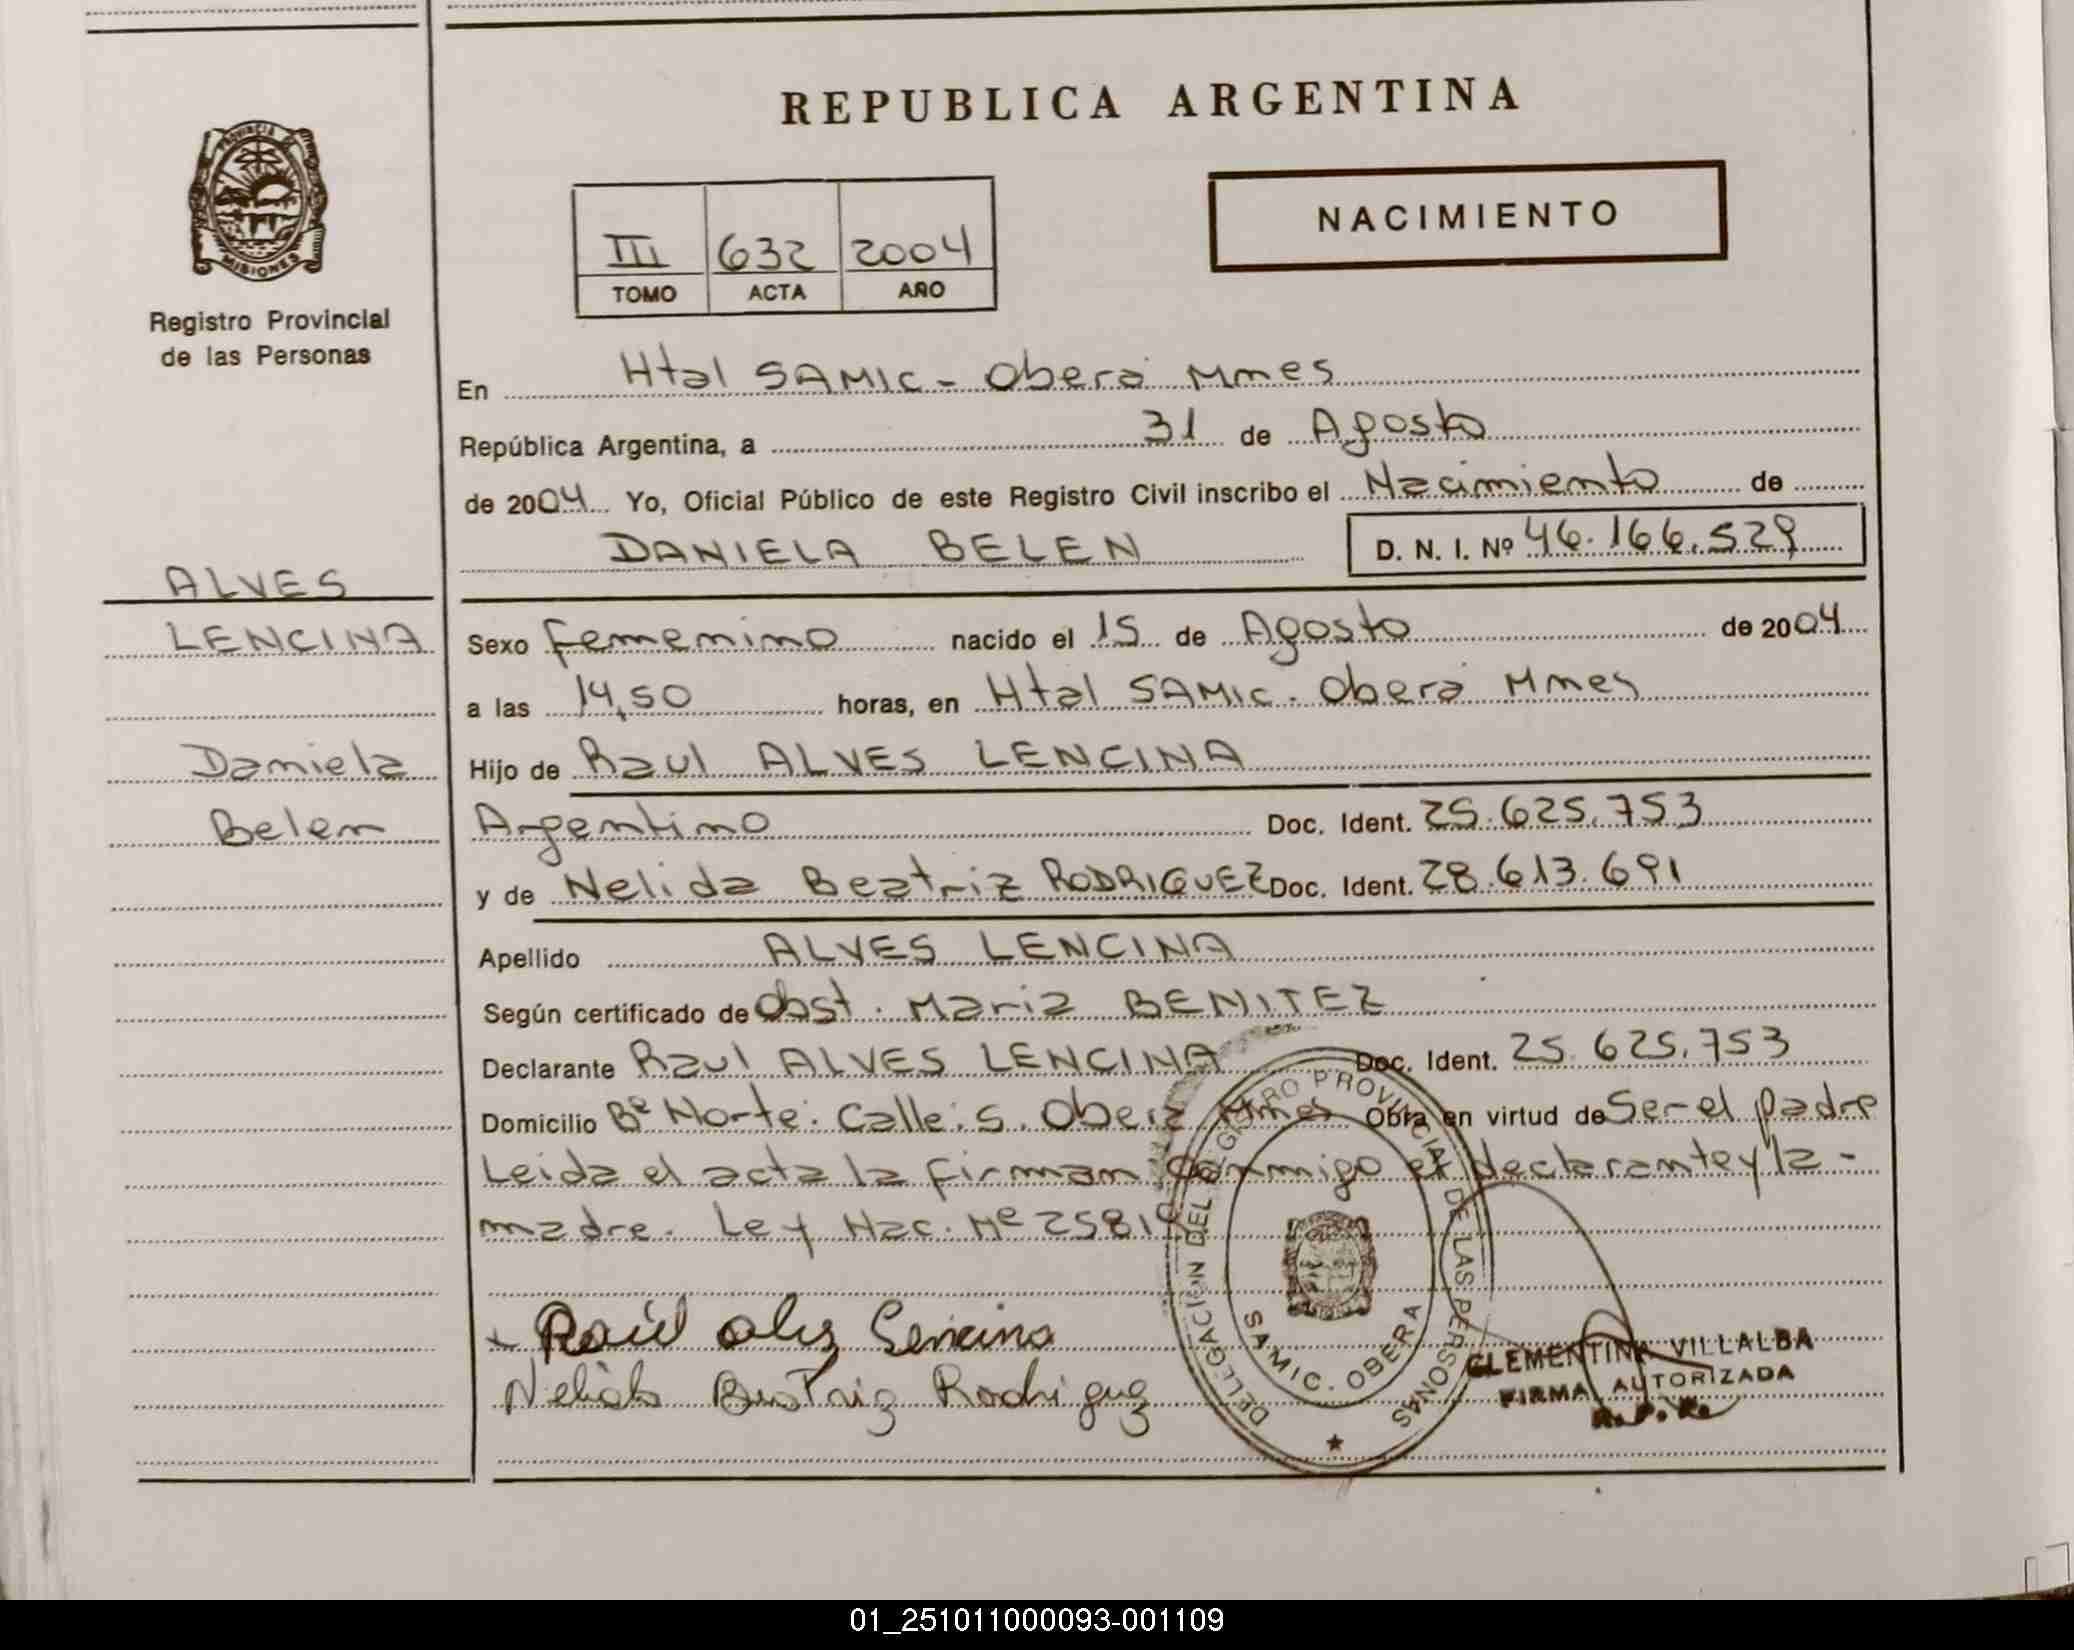 REPUBLICA ARGENTINA
PROVINCIA
MISIONES
Registro Provincial
de las Personas
NACIMIENTO
III 632 2004
TOMO ACTA AÑO
En Htal SAMIC - Oberá Mnes
República Argentina, a 31 de Agosto
de 2004 Yo, Oficial Público de este Registro Civil inscribo el Nacimiento de
DANIELA BELEN D. N. I. Nº 46.166.529
ALVES
LENCINA
Daniela
Belen
Sexo femenino nacido el 15 de Agosto de 2004
a las 14,50 horas, en Htal SAMIC - Oberá Mnes
Hijo de Raul ALVES LENCINA
Argentino Doc. Ident. 25.625.753
y de Nelida Beatriz RODRIGUEZ Doc. Ident. 28.613.691
Apellido ALVES LENCINA
Según certificado de Obst. Maria BENITEZ
Declarante Raul ALVES LENCINA Doc. Ident. 25.625.753
Domicilio Bº Norte: Calle: S. Obera Mnes Obra en virtud de Ser el padre
Leida el acta la firman conmigo el declarante y la -
madre. Ley Nac. Nº 25819
Raúl Lencina
Nelida Beatriz Rodriguez
DELEGACION DEL REGISTRO PROVINCIAL DE LAS PERSONAS
SAMIC. OBERA
CLEMENTINA VILLALBA
FIRMA AUTORIZADA
R. P. P.
01_251011000093-001109